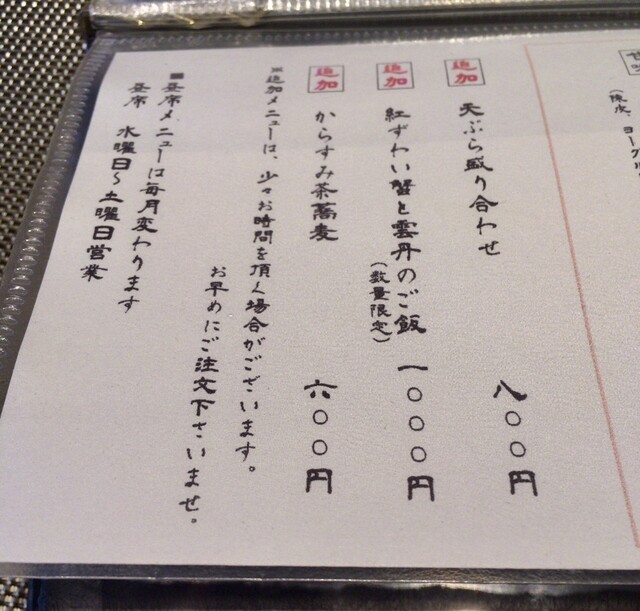 追加
天ぷら盛り合わせ
八〇〇円
追加
紅ずわい蟹と雲丹のご飯
(数量限定)
一〇〇〇円
追加
からすみ茶蕎麦
六〇〇円
※追加メニューは、少々お時間を頂く場合がございます。
お早めにご注文下さいませ。
■昼席メニューは毎月変わります
昼席 水曜日~土曜日営業